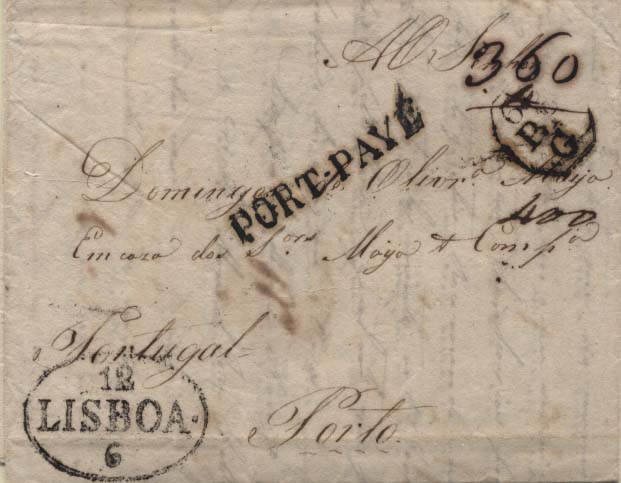 Ao Snr.
360
4
B G
PORT-PAYÉ
Domingos de Olivra. Maya
400
Em caza dos Sors. Maya & Compa.
Portugal
12
LISBOA.
6
Porto.